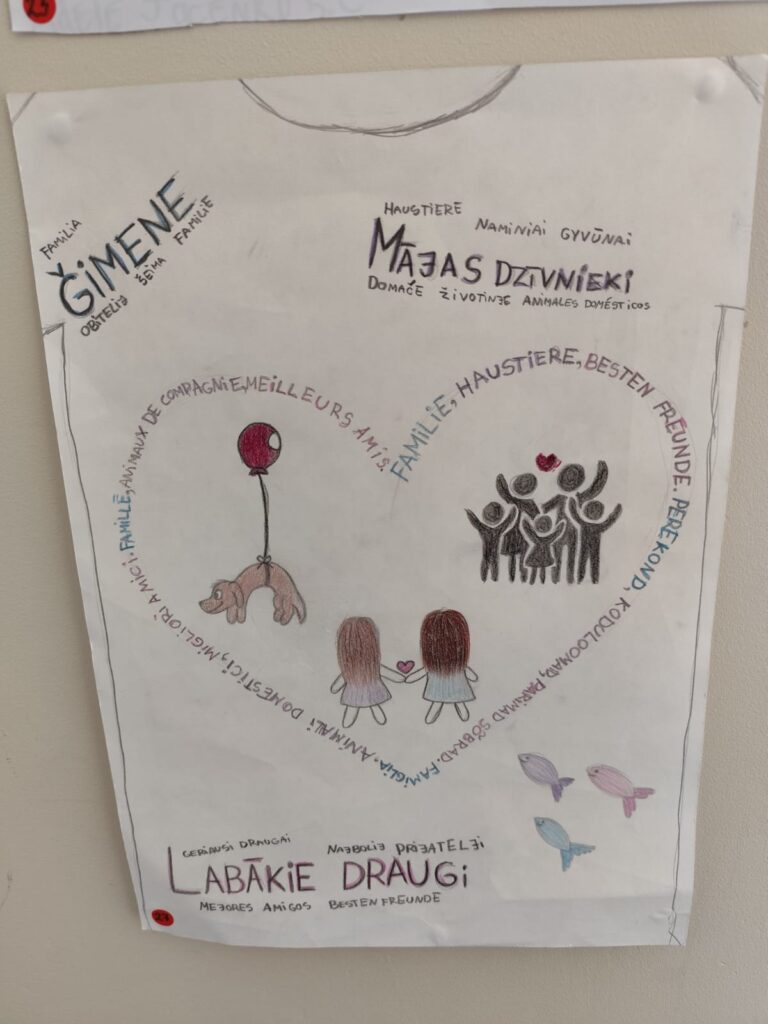 FAMILIA
ǦIMENE
OBITELJ ŠEIMA FAMILIE
HAUSTIERE NAMINIAI GYVŪNAI
MĀJAS DZIVNIEKI
DOMAĆE ŽIVOTINJE ANIMALES DOMÉSTICOS
FAMILIE, HAUSTIERE, BESTEN FREUNDE. PEREKOND, KODULOOMAD, PARIMAD SÕBRAD. FAMIGLIA, ANIMALI DOMESTICI, MIGLIORI AMICI. FAMILLE, ANIMAUX DE COMPAGNIE, MEILLEURS AMIS.
GERIAUSI DRAUGAI NAJBOLJI PRIJATELJI
LABĀKIE DRAUGI
MEJORES AMIGOS BESTEN FREUNDE
27